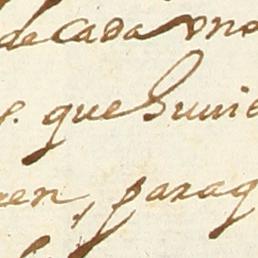 de cada vno
que huuie
en, parag